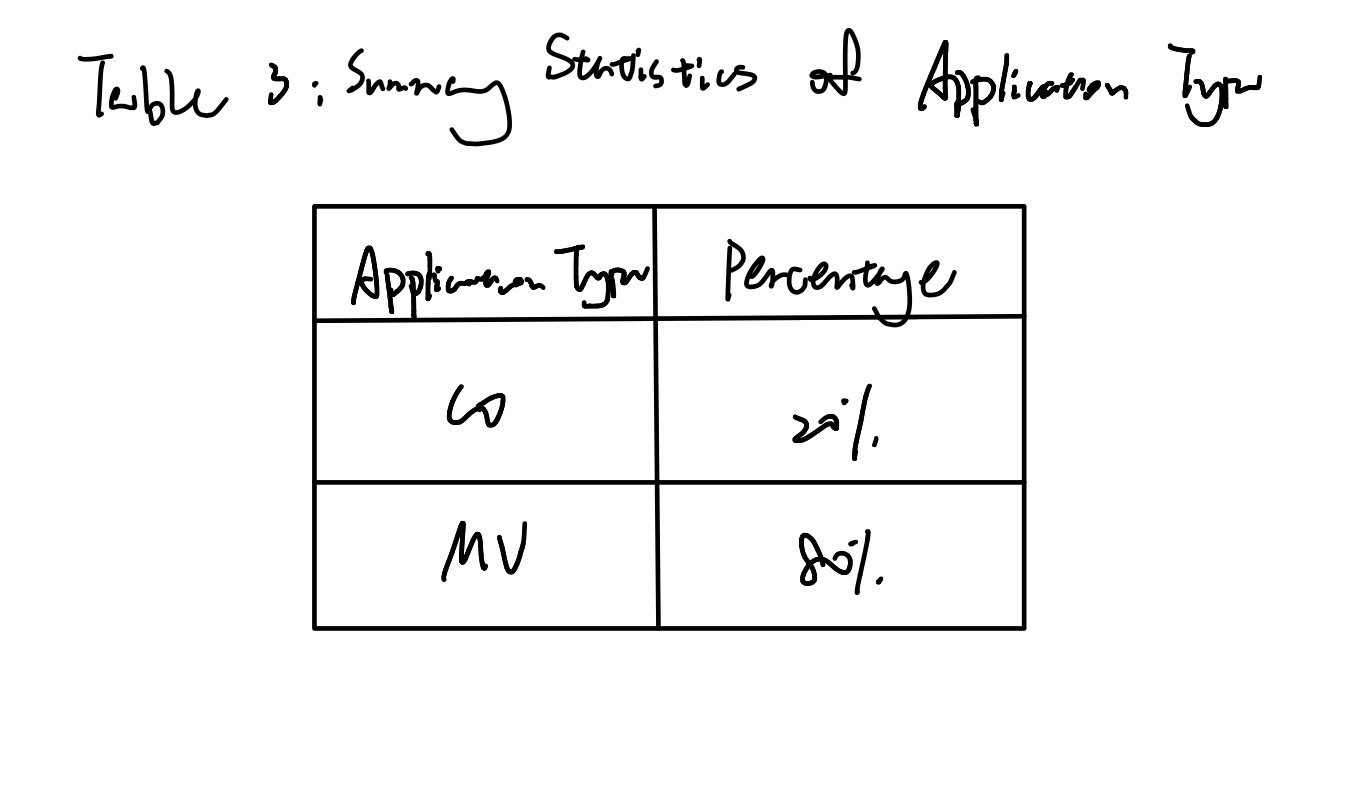 Table 3: Summary Statistics of Application Type
Application Type Percentage
20%
MV 80%